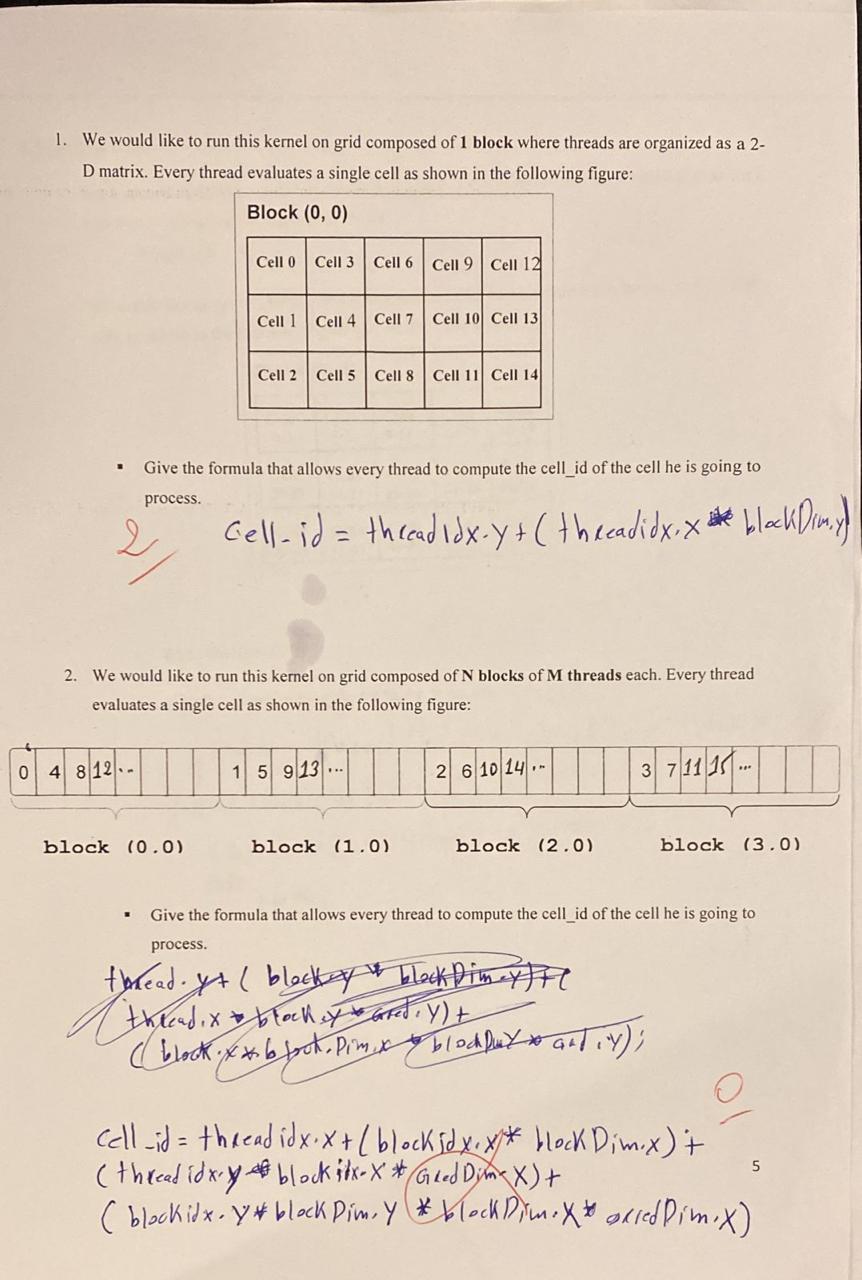 1. We would like to run this kernel on grid composed of 1 block where threads are organized as a 2-
D matrix. Every thread evaluates a single cell as shown in the following figure:
Block (0, 0)
Cell 0 Cell 3 Cell 6 Cell 9 Cell 12
Cell 1 Cell 4 Cell 7 Cell 10 Cell 13
Cell 2 Cell 5 Cell 8 Cell 11 Cell 14
▪ Give the formula that allows every thread to compute the cell_id of the cell he is going to
process.
2
Cell_id = threadIdx.y + ( threadidx.x * blockDim.y)
2. We would like to run this kernel on grid composed of N blocks of M threads each. Every thread
evaluates a single cell as shown in the following figure:
0 4 8 12 .. 1 5 9 13 ... 2 6 10 14 .. 3 7 11 15 ...
block (0.0) block (1.0) block (2.0) block (3.0)
▪ Give the formula that allows every thread to compute the cell_id of the cell he is going to
process.
thread.y + ( block.y * blockDim.y) + (
thread.x * block.y * Gred.y) +
0
Cell_id = threadidx.x + ( blockidx.x * blockDim.x) +
( threadidx.y * blockidx.X * GredDim.X) +
( blockidx.y * blockDim.y * blockDim.X * griedDim.X)
5